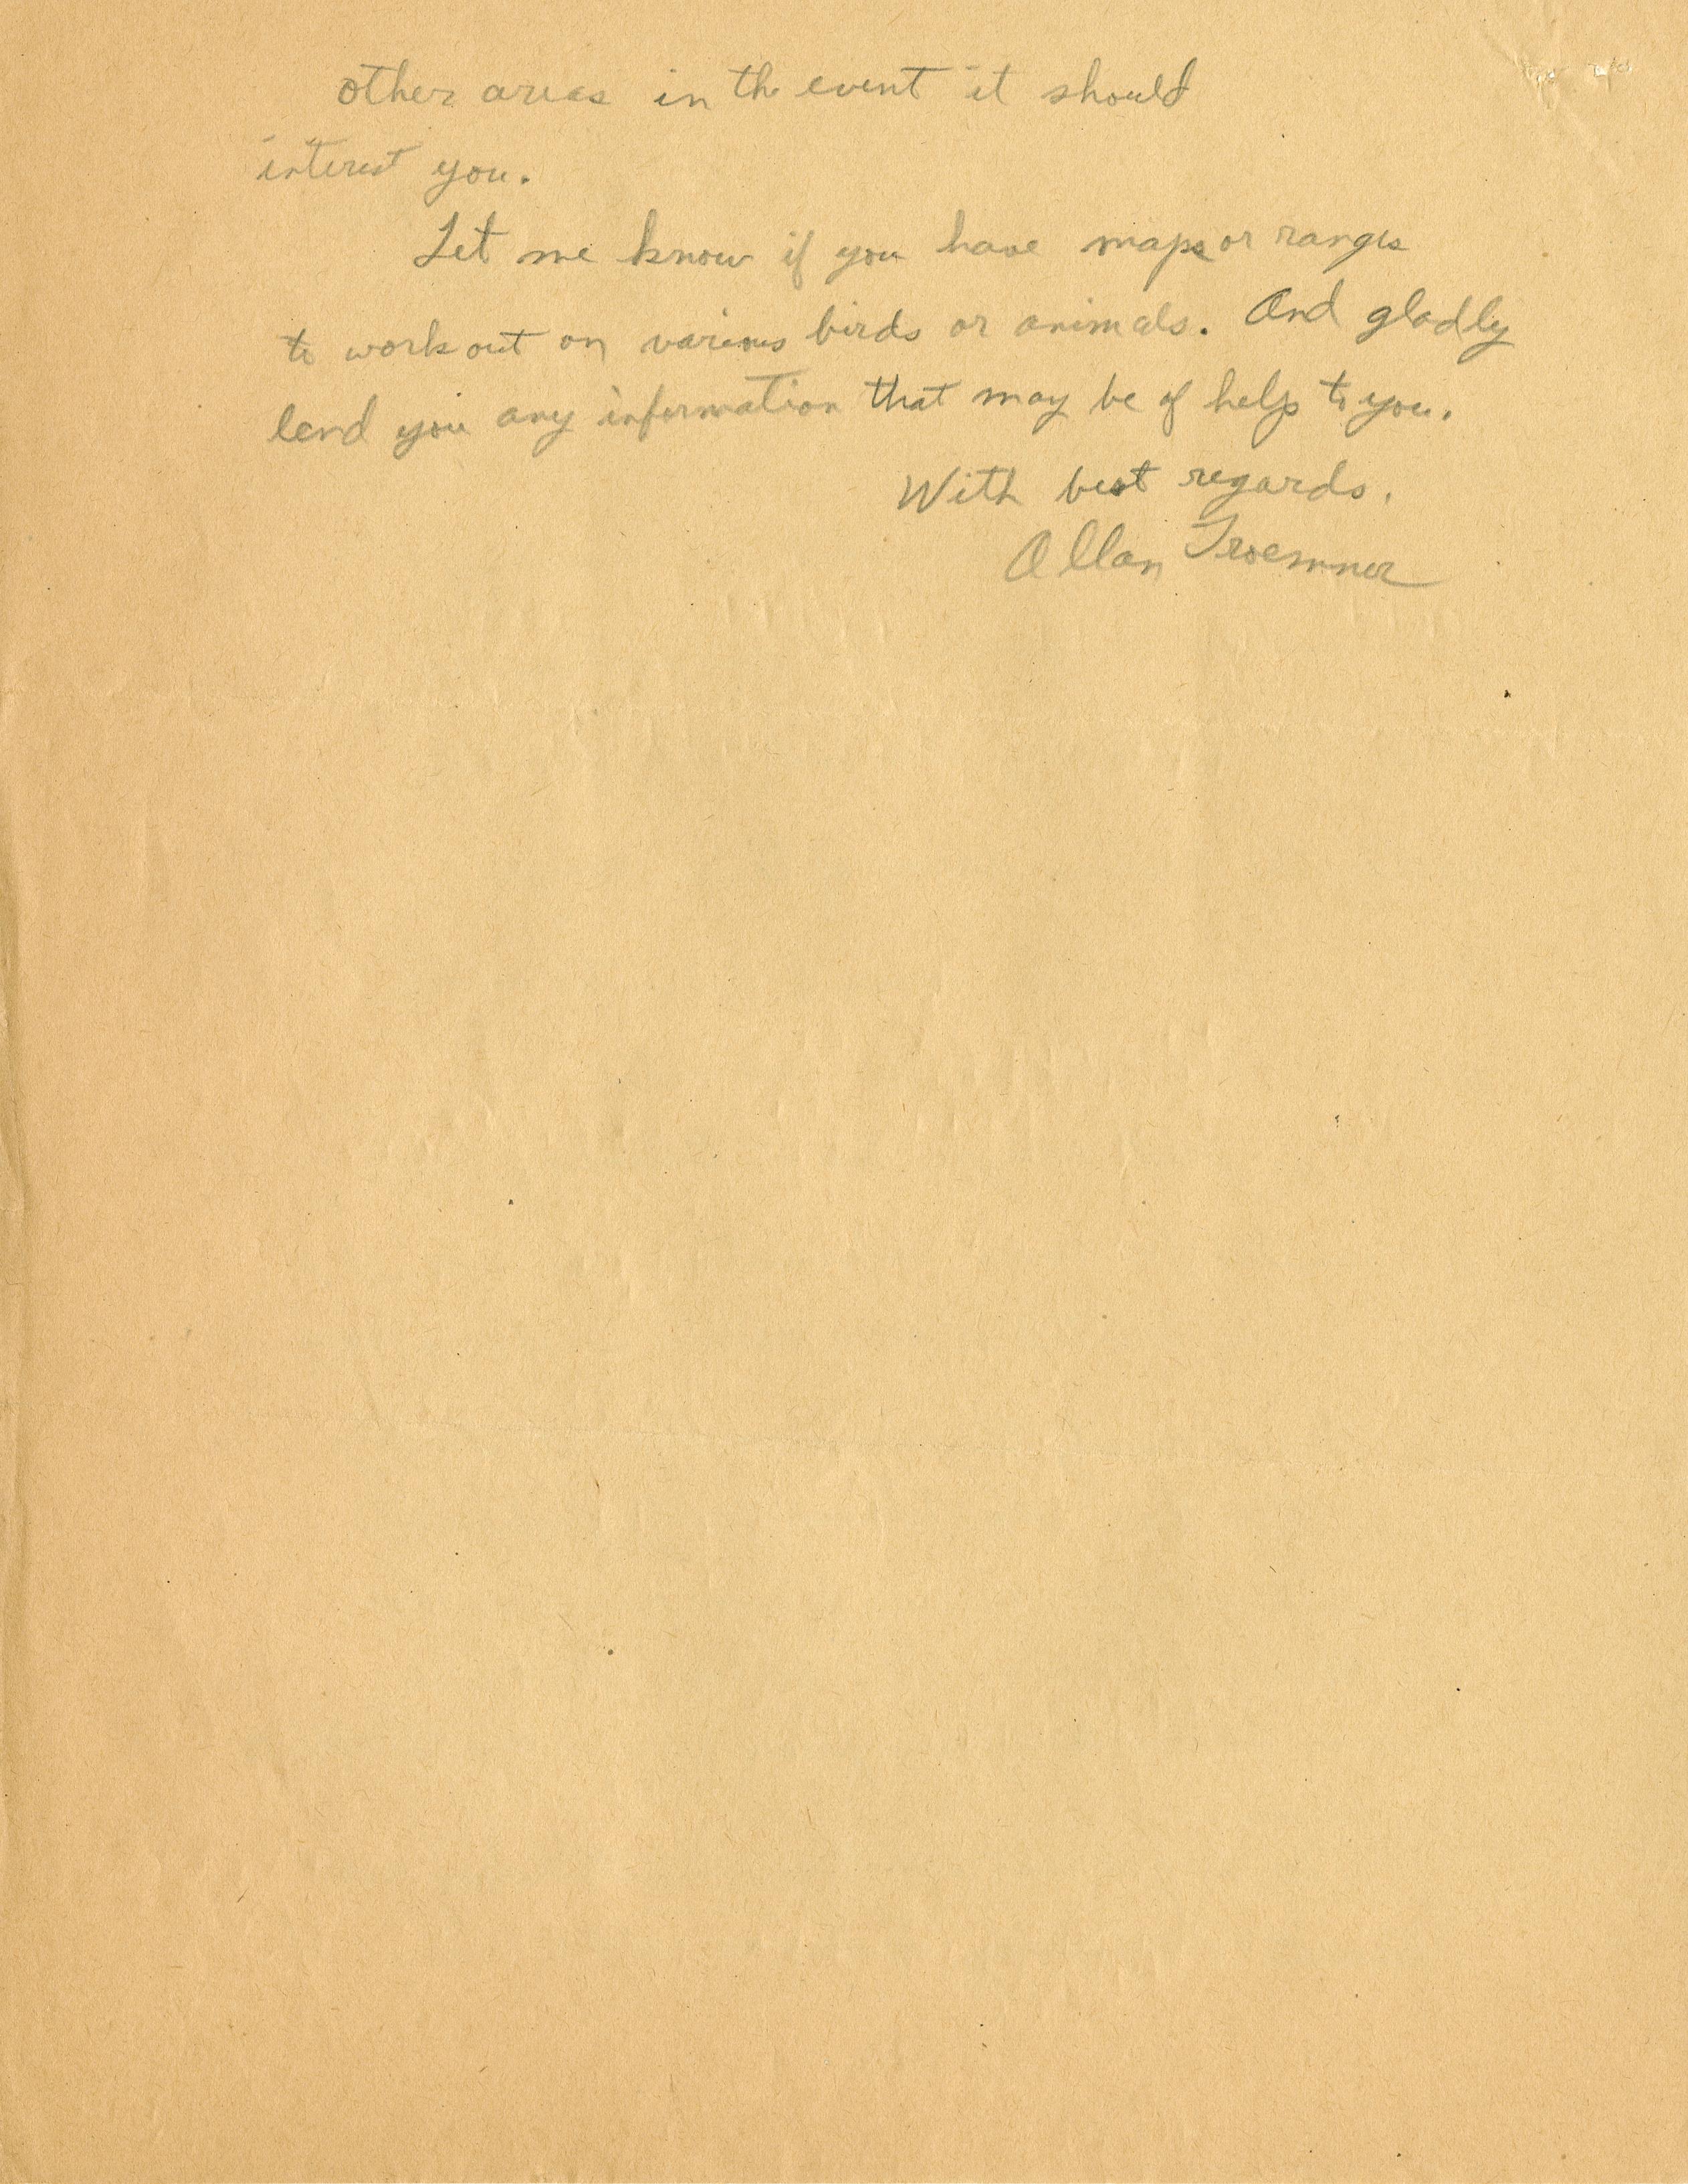 other areas in the event it should
interest you.
Let me know if you have maps or ranges
to work out on various birds or animals. And gladly
lend you any information that may be of help to you.
With best regards.
Allan Troemner